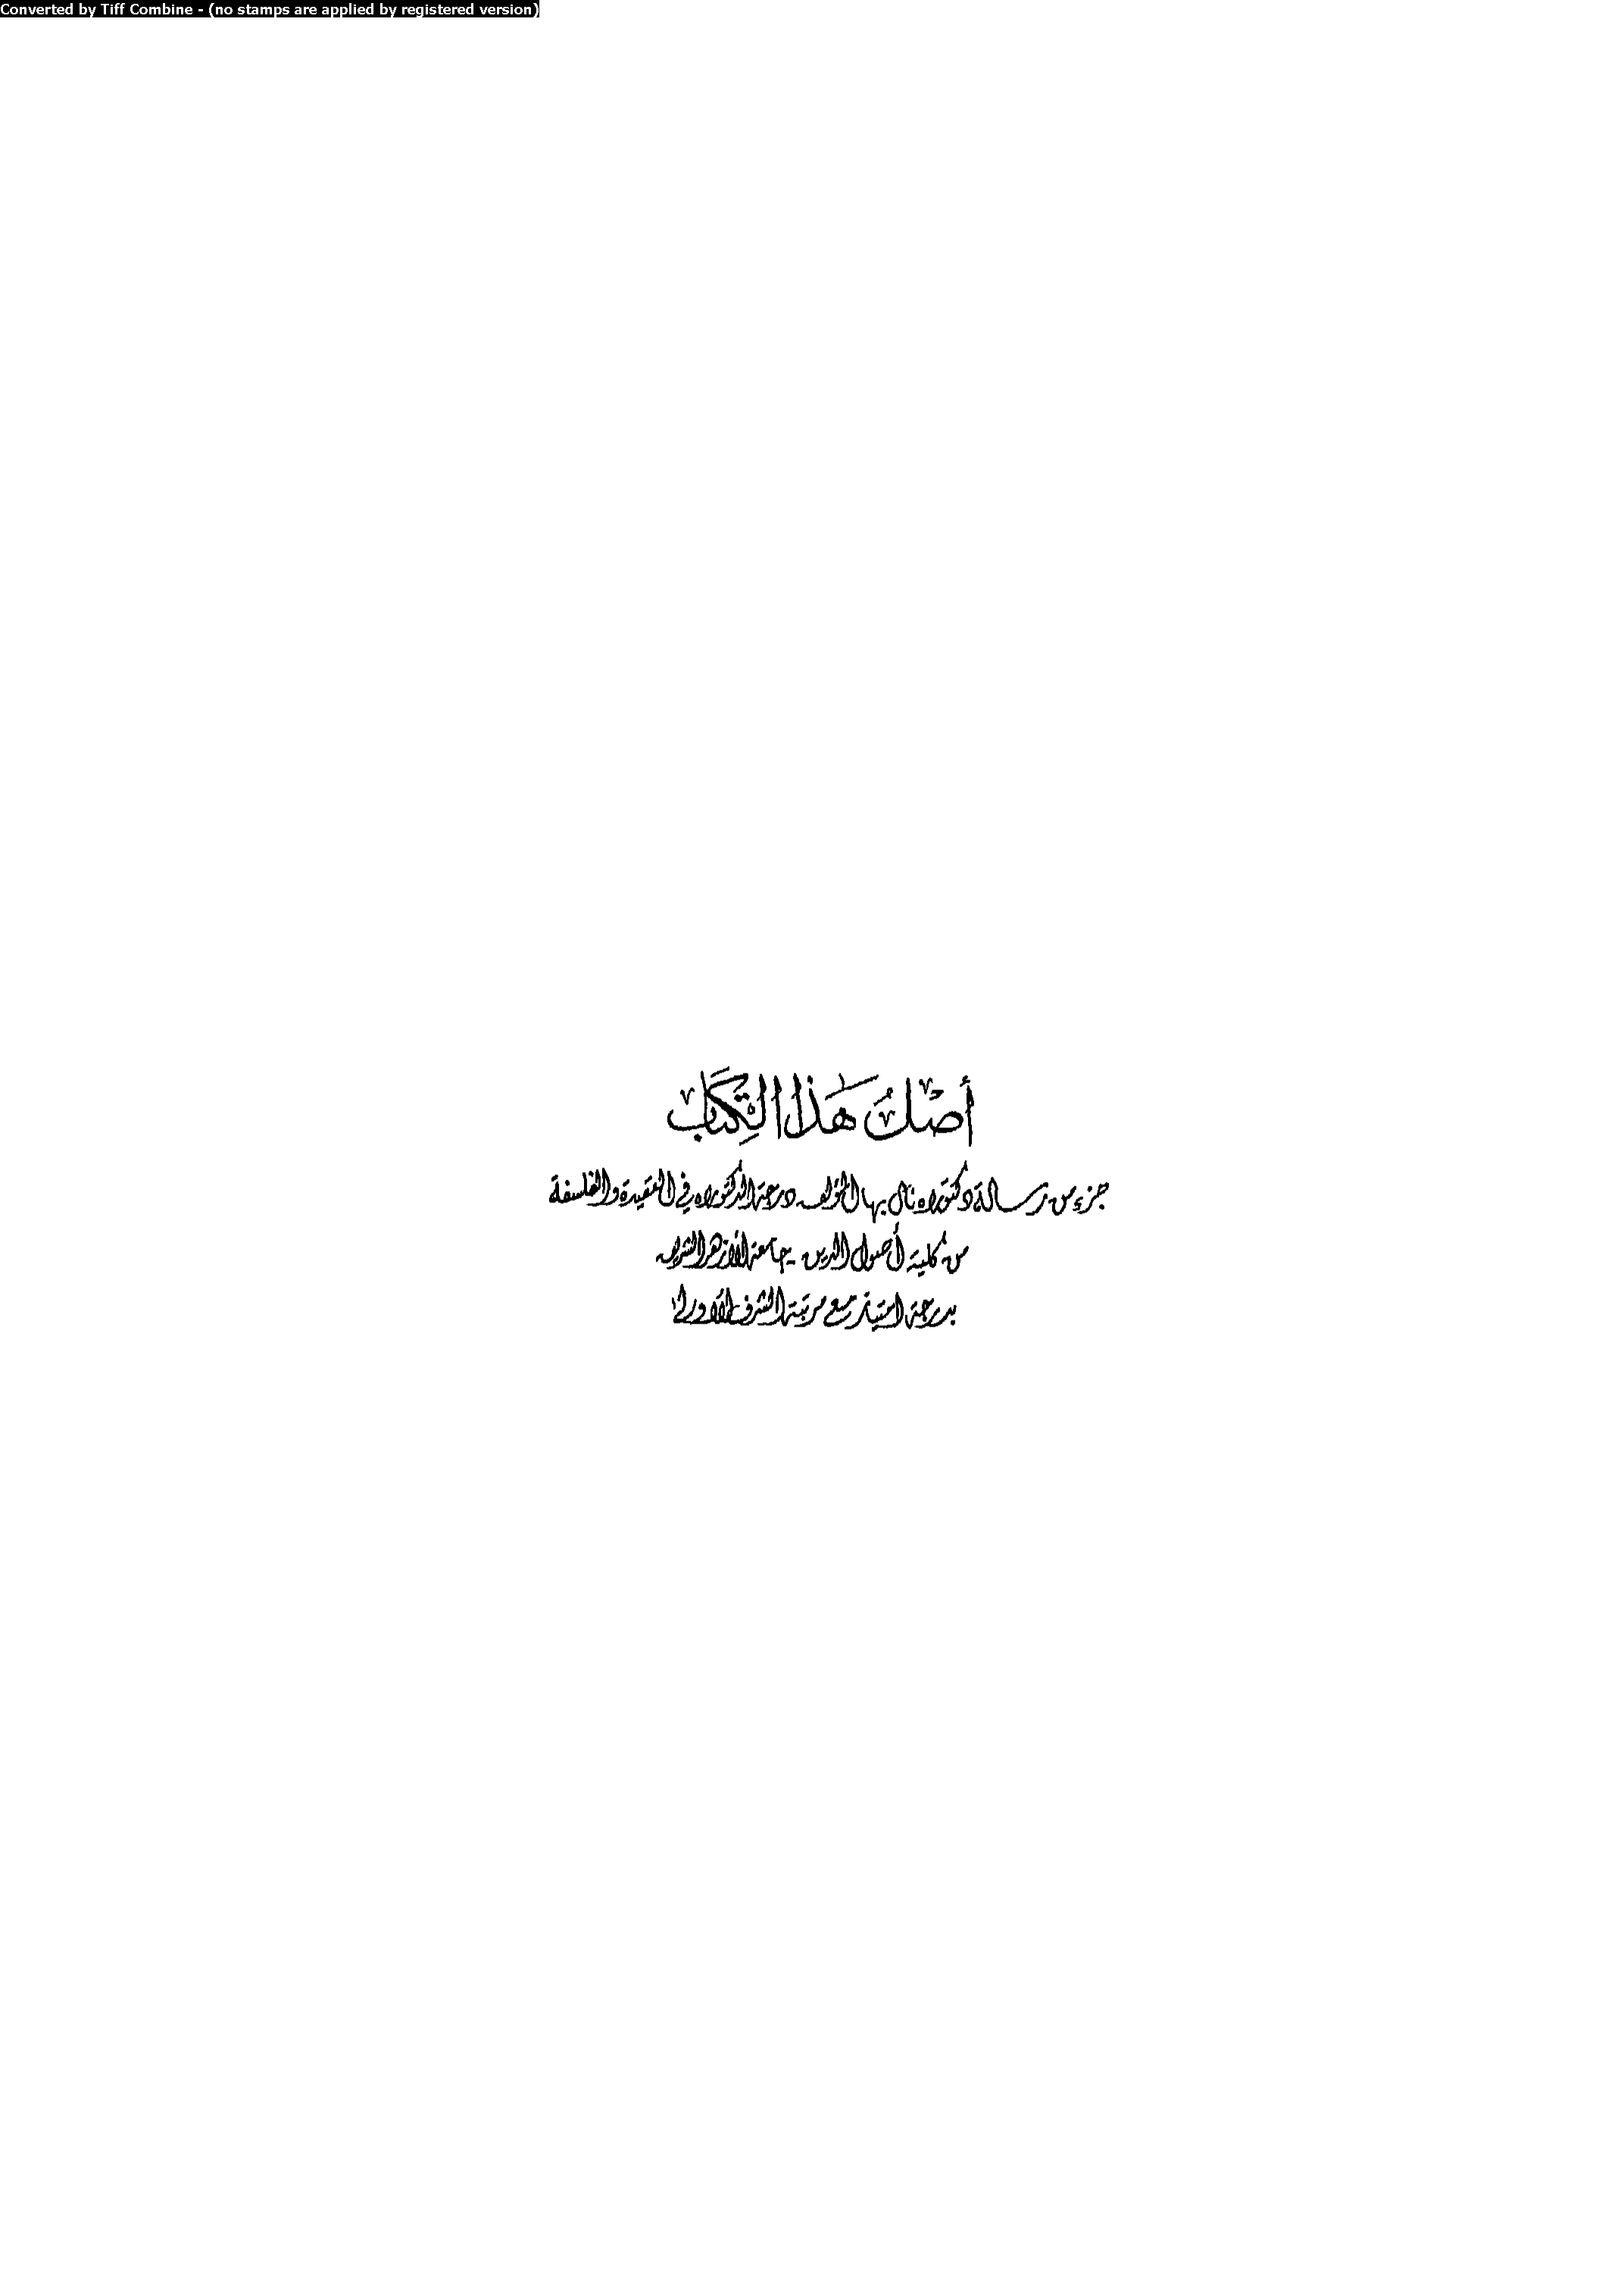 Converted by Tiff Combine - (no stamps are applied by registered version)
أَصْلُ هَذَا الْكِتَابْ
جزء من رسالة دكتوراه نال بها المؤلف درجة الدكتوراه في العقيدة والفلسفة
من كلية أصول الدين - جامعة الأزهر الشريف
بدرجة امتياز مع مرتبة الشرف الأولى